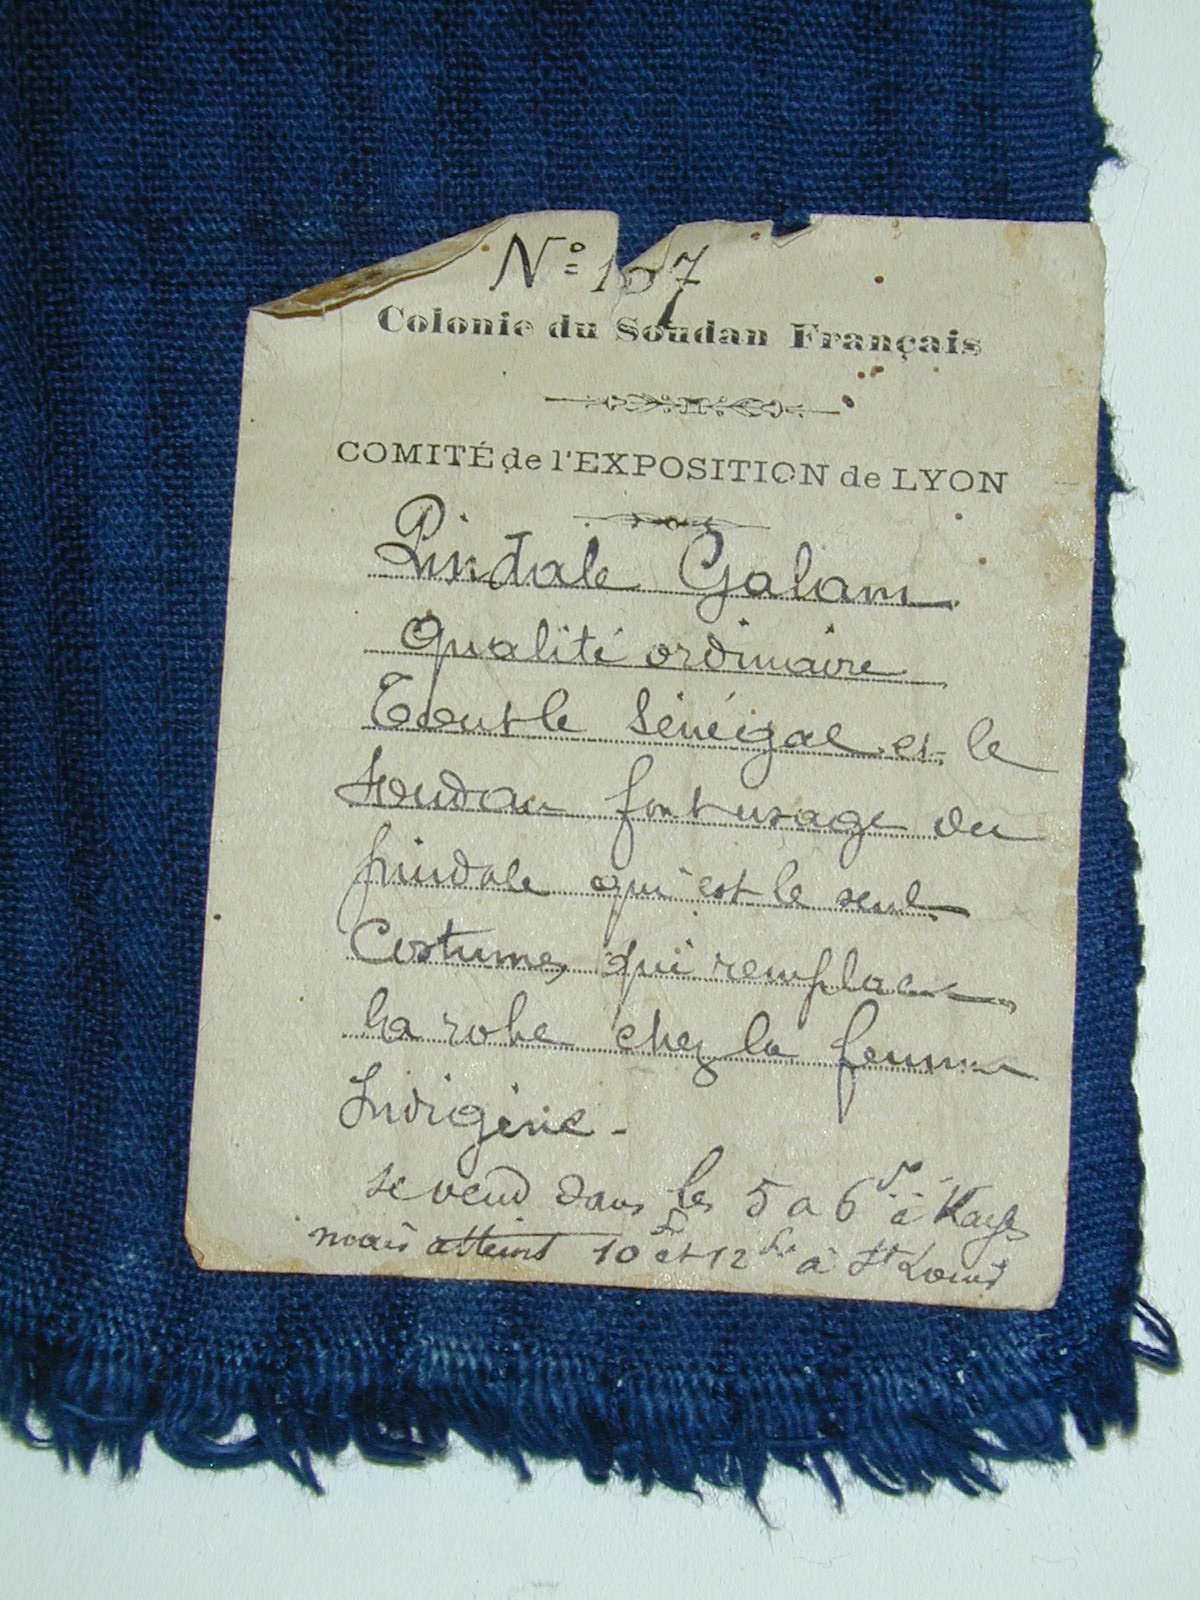 N° 107
Colonie du Soudan Français
COMITÉ de l'EXPOSITION de LYON
Pindale Galam
Qualité ordinaire
Tout le Sénégal et le
Soudan font usage du
pindale qui est le seul
Costume, qui remplace
la robe chez la femme
Indigène -
se vend dans les 5 a 6 frs à Kayes
mais atteint 10 fr et 12 frs à St Louis